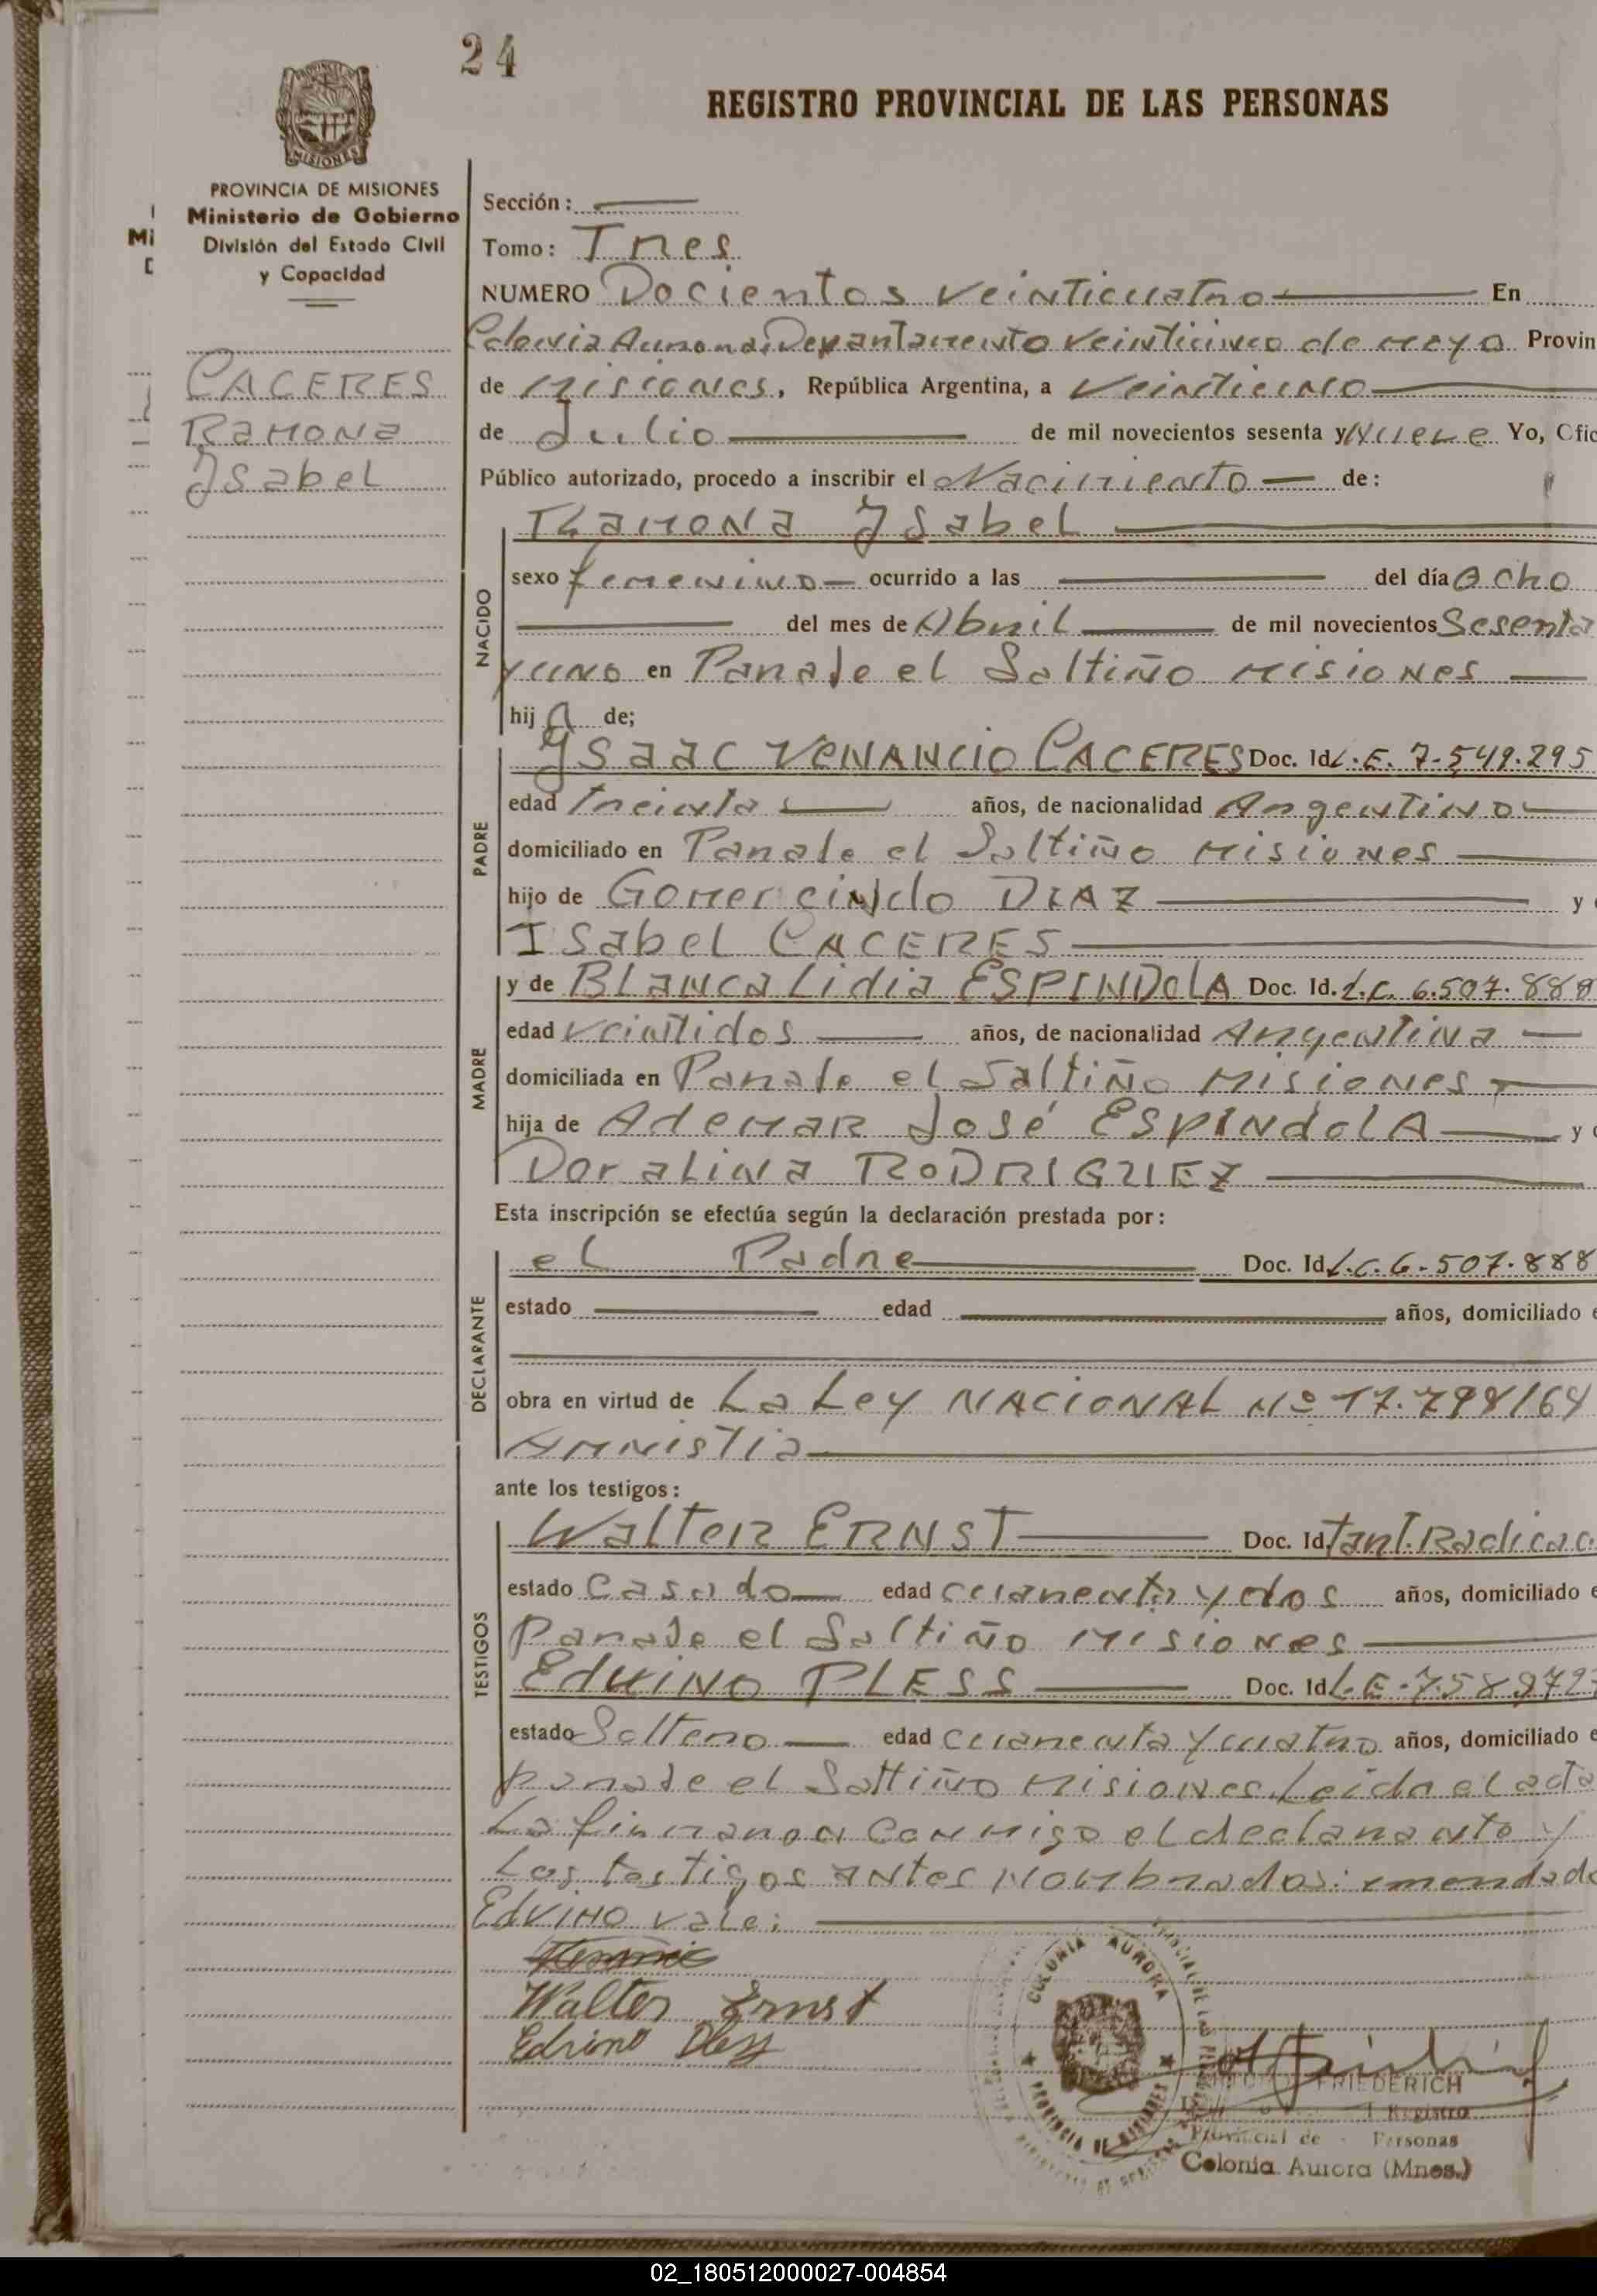 24
REGISTRO PROVINCIAL DE LAS PERSONAS
MISIONES
PROVINCIA DE MISIONES
Ministerio de Gobierno
División del Estado Civil
y Capacidad
CACERES
Ramona
Ysabel
Sección:
Tomo: Tres
NUMERO Docientos veinticuatro En
Colonia Aurora, Departamento veinticinco de mayo Provin
de Misiones, República Argentina, a veinticinco
de Julio de mil novecientos sesenta y Nueve Yo, Ofic
Público autorizado, procedo a inscribir el Nacimiento de:
NACIDO
Ramona Ysabel
sexo femenino ocurrido a las del día Ocho
del mes de Abril de mil novecientos Sesenta
y uno en Paraje el Saltiño Misiones
hij a de;
PADRE
Ysaac Venancio CACERES Doc. Id L.E. 7.549.295
edad treinta años, de nacionalidad Argentino
domiciliado en Paraje el Saltiño Misiones
hijo de Gomercindo DIAZ y
Isabel CACERES
MADRE
y de Blanca Lidia ESPINDOLA Doc. Id. L.C. 6.507.888
edad veintidos años, de nacionalidad Argentina
domiciliada en Paraje el Saltiño Misiones
hija de Ademar José ESPINdolA y
Doralina RODRIGUEZ
Esta inscripción se efectúa según la declaración prestada por:
DECLARANTE
el Padre Doc. Id L.C. 6.507.888
estado edad años, domiciliado e
obra en virtud de La Ley NACIONAL Nº 17.798/68
Amnistia
ante los testigos:
TESTIGOS
Walter ERNST Doc. Id. Tarj. Radicac.
estado Casado edad cuarenta y dos años, domiciliado e
Paraje el Saltiño Misiones
Eduino PLESS Doc. Id L.E. 7.58 972
estado Soltero edad cuarenta y cuatro años, domiciliado e
paraje el Saltiño Misiones. Leida el acta
La firmaron conmigo el declarante y
Los testigos antes Nombrados: emendado
Edvino vale:
Walter Ernst
Edvino Pless
COLONIA AURORA
PROVINCIA DE MISIONES
FRIEDERICH
Registro
Provincial de Personas
Colonia Aurora (Mnes.)
02_180512000027-004854